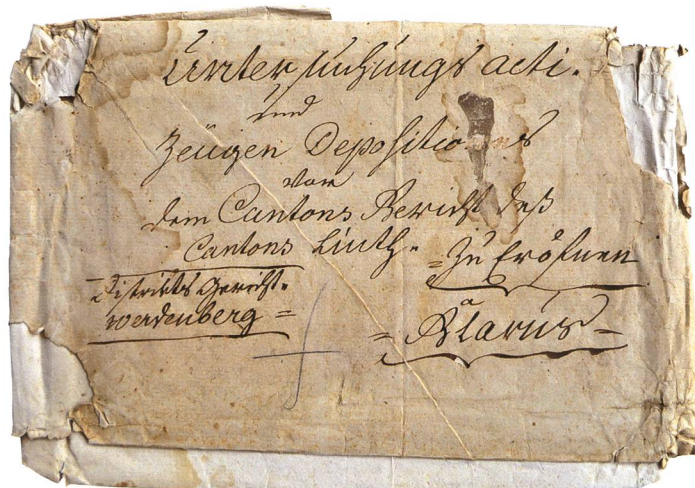 Untersuchungs acti.
und
Zeügen Depositiones
von
dem Cantons Gericht deß
Cantons Linth.
=Zu Eröfnen
Districkts Gericht.
Werdenberg=
a
=Glarus=